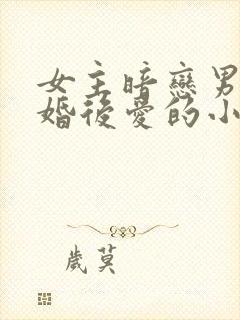 女主暗戀男
婚後愛的小
歲莫